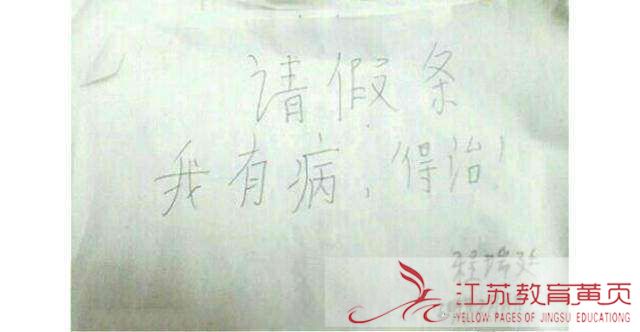 请假条
我有病，得治！
江苏教育黄页
YELLOW PAGES OF JINGSU EDUCATIONG